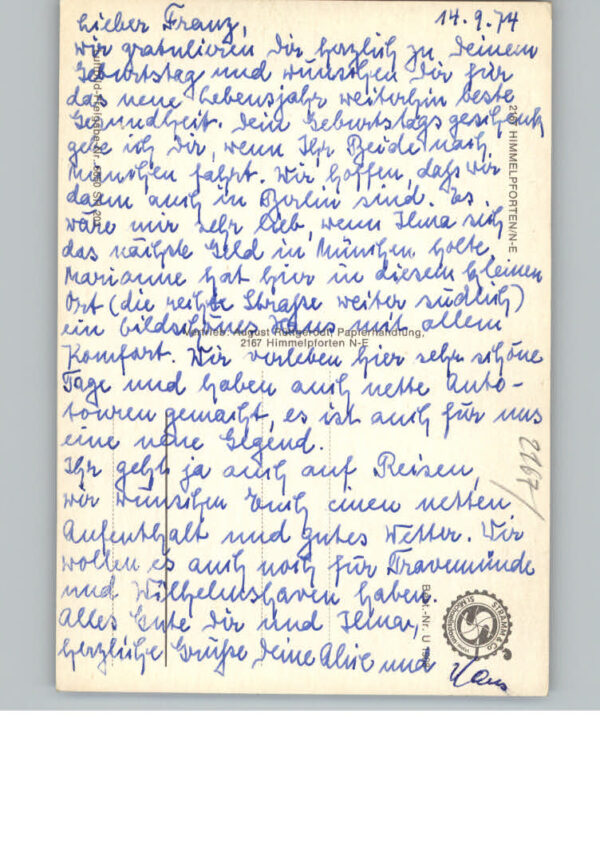 14.9.74
Lieber Franz,
wir gratulieren Dir herzlich zu Deinem
Geburtstag und wünschen Dir für
das neue Lebensjahr weiterhin beste
Gesundheit. Dein Geburtstagsgeschenk
gebe ich Dir, wenn Ihr Beide nach
München fahrt. Wir hoffen, daß wir
dann auch in Berlin sind. Es
wäre mir sehr lieb, wenn Ilma sich
das nächste Geld in München holte.
Marianne hat hier in diesem kleinen
Ort (die rechte Straße weiter südlich)
ein bildschönes Haus mit allem
Komfort. Wir verleben hier sehr schöne
Tage und haben auch nette Auto-
touren gemacht, es ist auch für uns
eine neue Gegend.
Ihr geht ja auch auf Reisen,
wir wünschen Euch einen netten
Aufenthalt und gutes Wetter. Wir
wollen es auch noch für Travemünde
und Wilhelmshaven haben.
Alles Gute Dir und Ilma,
herzliche Grüße Deine und
Hans
2167 HIMMELPFORTEN/N-E
Vertrieb: August Papierhandlung,
2167 Himmelpforten N-E
2167
STRAMM & CO
Best.-Nr. U